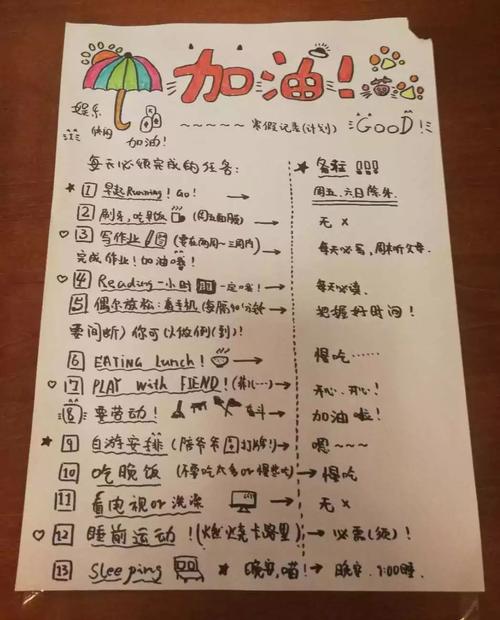 加油!
娱乐
快阅
加油!
~~~~~寒假记表(计划)
GOOD!
每天必须完成的任务:
备注 !!!
★ 1 早起Running! Go! →
周五、六日除外
2 刷牙,吃早饭 →
无 ×
♡ 3 写作业 (要在两周~三周内) →
完成作业!加油哦!
每天必写,周末听父母.
♡ 4 Reading 一小时 一定哦! →
每天必读.
5 偶尔放松:看手机(每隔40分钟 →
要间断)你可以做例(到)!
把握好时间!
6 EATING Lunch! →
慢吃……
♡ 7 PLAY with FIEND! →
开心、开心!
8 要劳动! 奋斗→
加油啦!
★ 9 自游安排(陪爷爷打牌!)→
嗯~~~
10 吃晚饭(不要吃太多or慢些吃)→
慢吃
11 看电视or洗漱 →
无 ×
♡ 12 睡前运动!(燃烧卡路里)→
必需(须)!
13 Sleeping ★ 晚安,喵!→
晚安. 9:00睡.